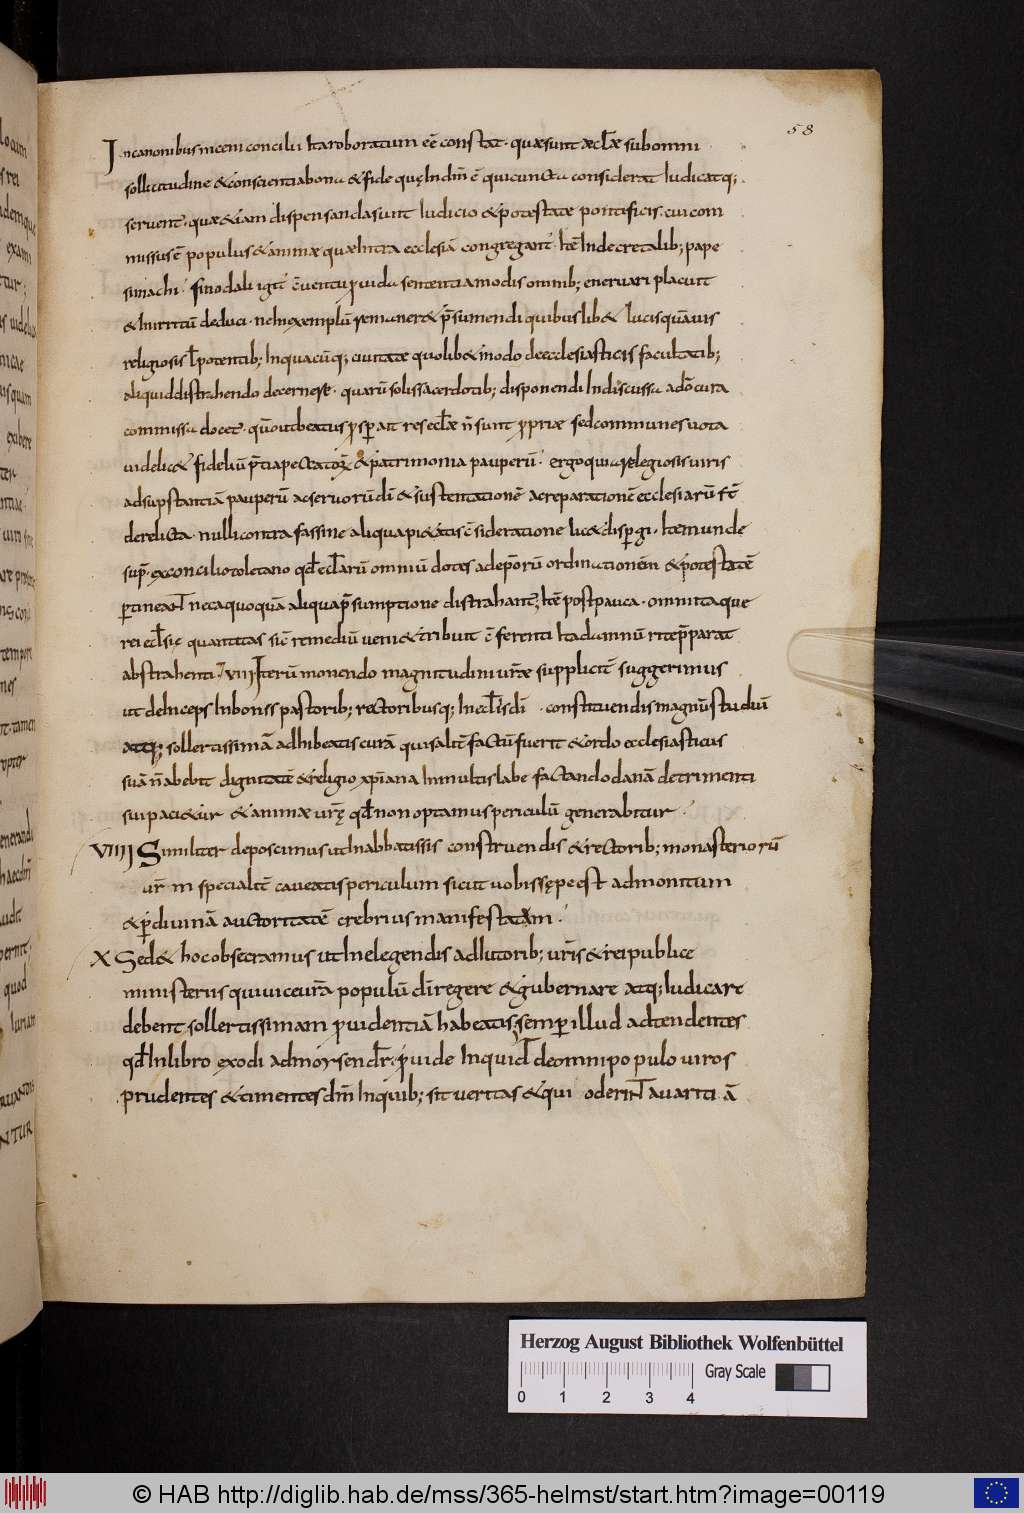 58
In canonibus niceni concilii Ita roboratum eē constat· quæ sunt æclæ sub omni
sollicitudine & conscientia bona & fide quę In dm̄ ē qui cuncta considerat Iudicatq;
seruent· quæ & iam dispensanda sunt Iudicio & potestate pontificis· cui com
missus ē populus & animæ quæ Intra ecclesiā congregant̄· Itē In decretalib; pape
simachi· sinodali igit̄ c̄uentu ꝓuida sententia modis omnib; eneruari placuit
& In irritū deduci· ne In exemplū remaner& p̄sumendi quibuslib& laicis quāuis
religiosis ł potentib; In quacūq; ciuitate quolib& modo de ecclesiasticis facultatib;
aliquid distrahendo decernere· quarū solis sacerdotib; disponendi Indiscussa a dō cura
commissa docet· qūo ut beatus ꝓsꝑ ait res ecłæ n̄ sunt ꝓpriæ sed communes uota
uidelic& fideliū p̄tia peccatoꝝ & patrimonia pauperū· ergo quia relegiosis uiris
ad supstantiā pauperū ac seruorū dī & sustentationē ac reparationē ecclesiarū st̄
derelicta· nulli contra fas sine aliqua pi&atis c̄sideratione lic& disꝑgi· Item unde
sup̄· ex concilio toletano qd̄ ecłarū omniū dotes ad ep̄orū ordinationem & potestatē
ꝑtineant nec a quoquā aliqua p̄sumptione distrahant̄; Itē post pauca· omnitaque
rei ecłsie quantitas
abstrahenti; VIII Iterū monendo magnitudini uræ supplicit̄ suggerimus
ut deInceps In bonis pastorib; rectoribusq; In ecłis dī · constituendis magnū studiū
atq; sollertissimā adhibeatis curā qui si alit̄ factū fuerit & ordo ecclesiasticus
suā n̄ abebit dignitatē & religio xp̄iana In multis labefactando danā detrimenti
sui paci&ur & animæ urę qd̄ non optamus periculū generabitur·
VIIII Similiter deposcimus ut In abbatissis construendis & rectorib; monasteriorū
ur̄m specialit̄ caueatis periculum sicut uobis sępe est admonitum
& ꝑ diuinā auctoritatē crebrius manifestatum·
X Sed & hoc obsecramus ut In elegendis adIutorib; ur̄is & rei publice
ministeriis qui uice ur̄a populū dī regere & gubernare atq; Iudicare
debent sollertissimam ꝓuidentiā habeatis; semꝑ illud adtendentes
qd̄ In libro exodi ad moysen dr̄· ꝓuide Inquid de omni populo uiros
prudentes & timentes dm̄ In quib; sit ueritas & qui oderint auaritiā
Herzog August Bibliothek Wolfenbüttel
Gray Scale
0 1 2 3 4
© HAB http://diglib.hab.de/mss/365-helmst/start.htm?image=00119